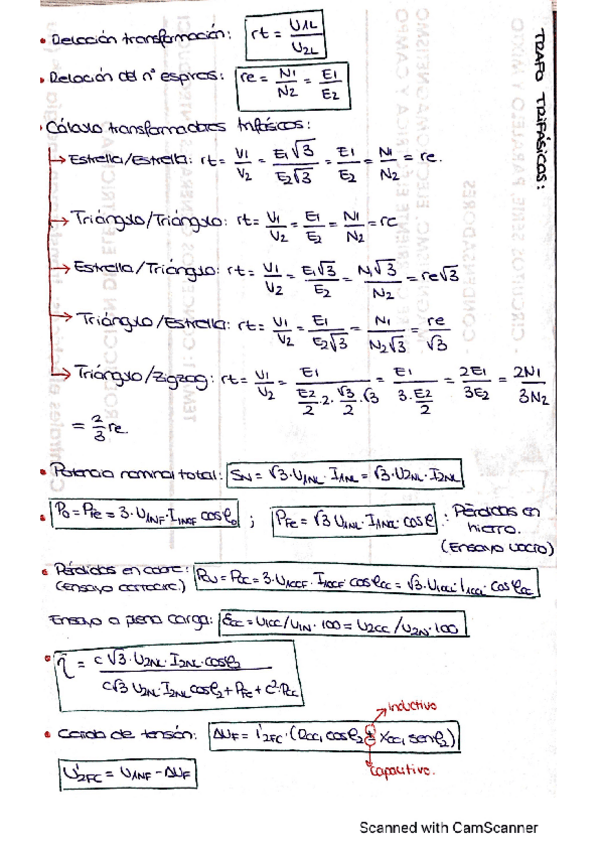 TRAFO TRIFÁSICOS:
• Relación transformación: rt = U1L / U2L
• Relación del nº espiras: re = N1/N2 = E1/E2
· Cálculo transformadores trifásicos:
→ Estrella/Estrella: rt = V1/V2 = E1√3/E2√3 = E1/E2 = N1/N2 = re.
→ Triángulo/Triángulo: rt = V1/V2 = E1/E2 = N1/N2 = re
→ Estrella/Triángulo: rt = V1/V2 = E1√3/E2 = N1√3/N2 = re√3
→ Triángulo/Estrella: rt = V1/V2 = E1/E2√3 = N1/N2√3 = re/√3
→ Triángulo/zigzag: rt = V1/V2 = E1 / (E2/2 · 2 · √3/2 · √3) = E1 / (3 · E2/2) = 2E1/3E2 = 2N1/3N2
= 2/3 re.
• Potencia nominal total: SN = √3·U1NL·I1NL = √3·U2NL·I2NL
• Po = PFe = 3·U1NF· cosφo ; PFe = √3 U1NL· cosφ : Pérdidas en
hierro.
(Ensayo vacío)
• Pérdidas en cobre: PCu = PCC = 3·U1CCF·I1CCF·cosφCC = √3·U1CCL·I1CCL·cosφCC
(Ensayo cortocirc.)
Ensayo a plena carga: εCC = U1CC/U1N·100 = U2CC/U2N·100
• η = c√3·U2NL·I2NL·cosφ2 / c√3 U2NL·I2NL cosφ2 + PFe + c²·PCC
inductivo
• Caída de tensión: ΔUF = I'2FC·(RCC1 cosφ2 ± XCC1 senφ2)
capacitivo.
U'2FC = U1NF - ΔUF
Scanned with CamScanner